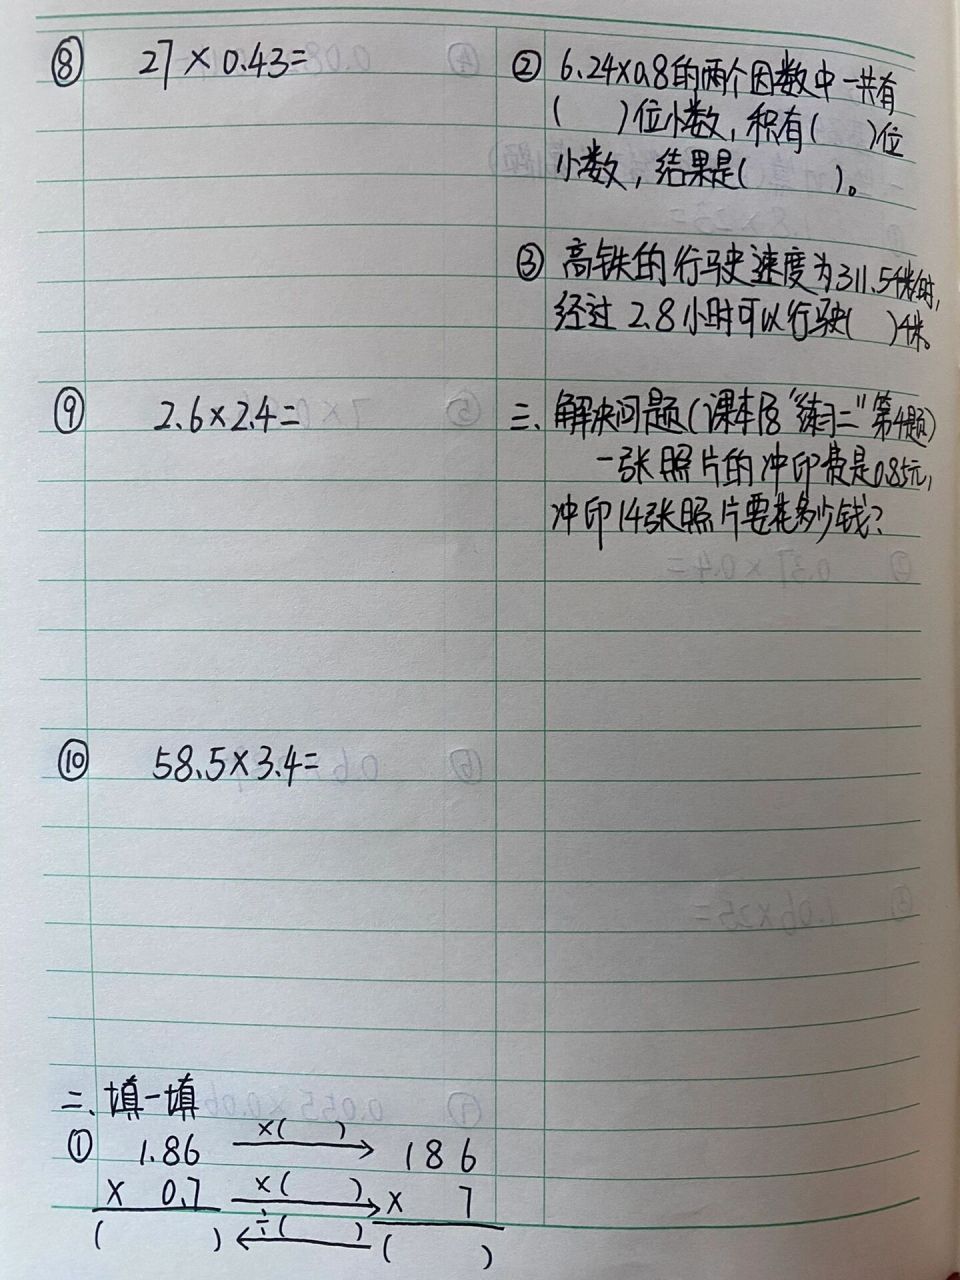 ⑧ 27×0.43=
⑨ 2.6×2.4=
⑩ 58.5×3.4=
二、填一填
① 1.86 ×( ) 186
× 0.7 ×( ) × 7
( ) ÷( ) ( )
② 6.24×0.8的两个因数中一共有
( )位小数，积有( )位
小数，结果是( )。
③ 高铁的行驶速度为311.5千米/时，
经过2.8小时可以行驶( )千米。
三、解决问题(课本P8"练习二"第4题)
一张照片的冲印费是0.85元，
冲印14张照片要花多少钱？